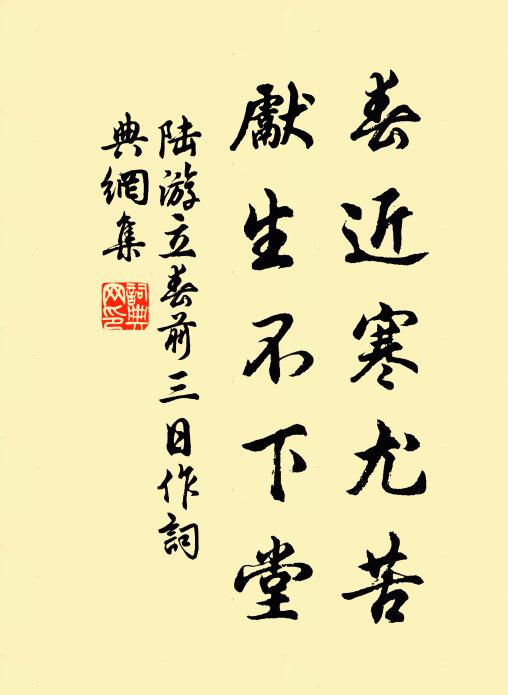 春近寒尤苦
獻生不下堂
陸游立春前三日作詞
典網集
詞典
网印